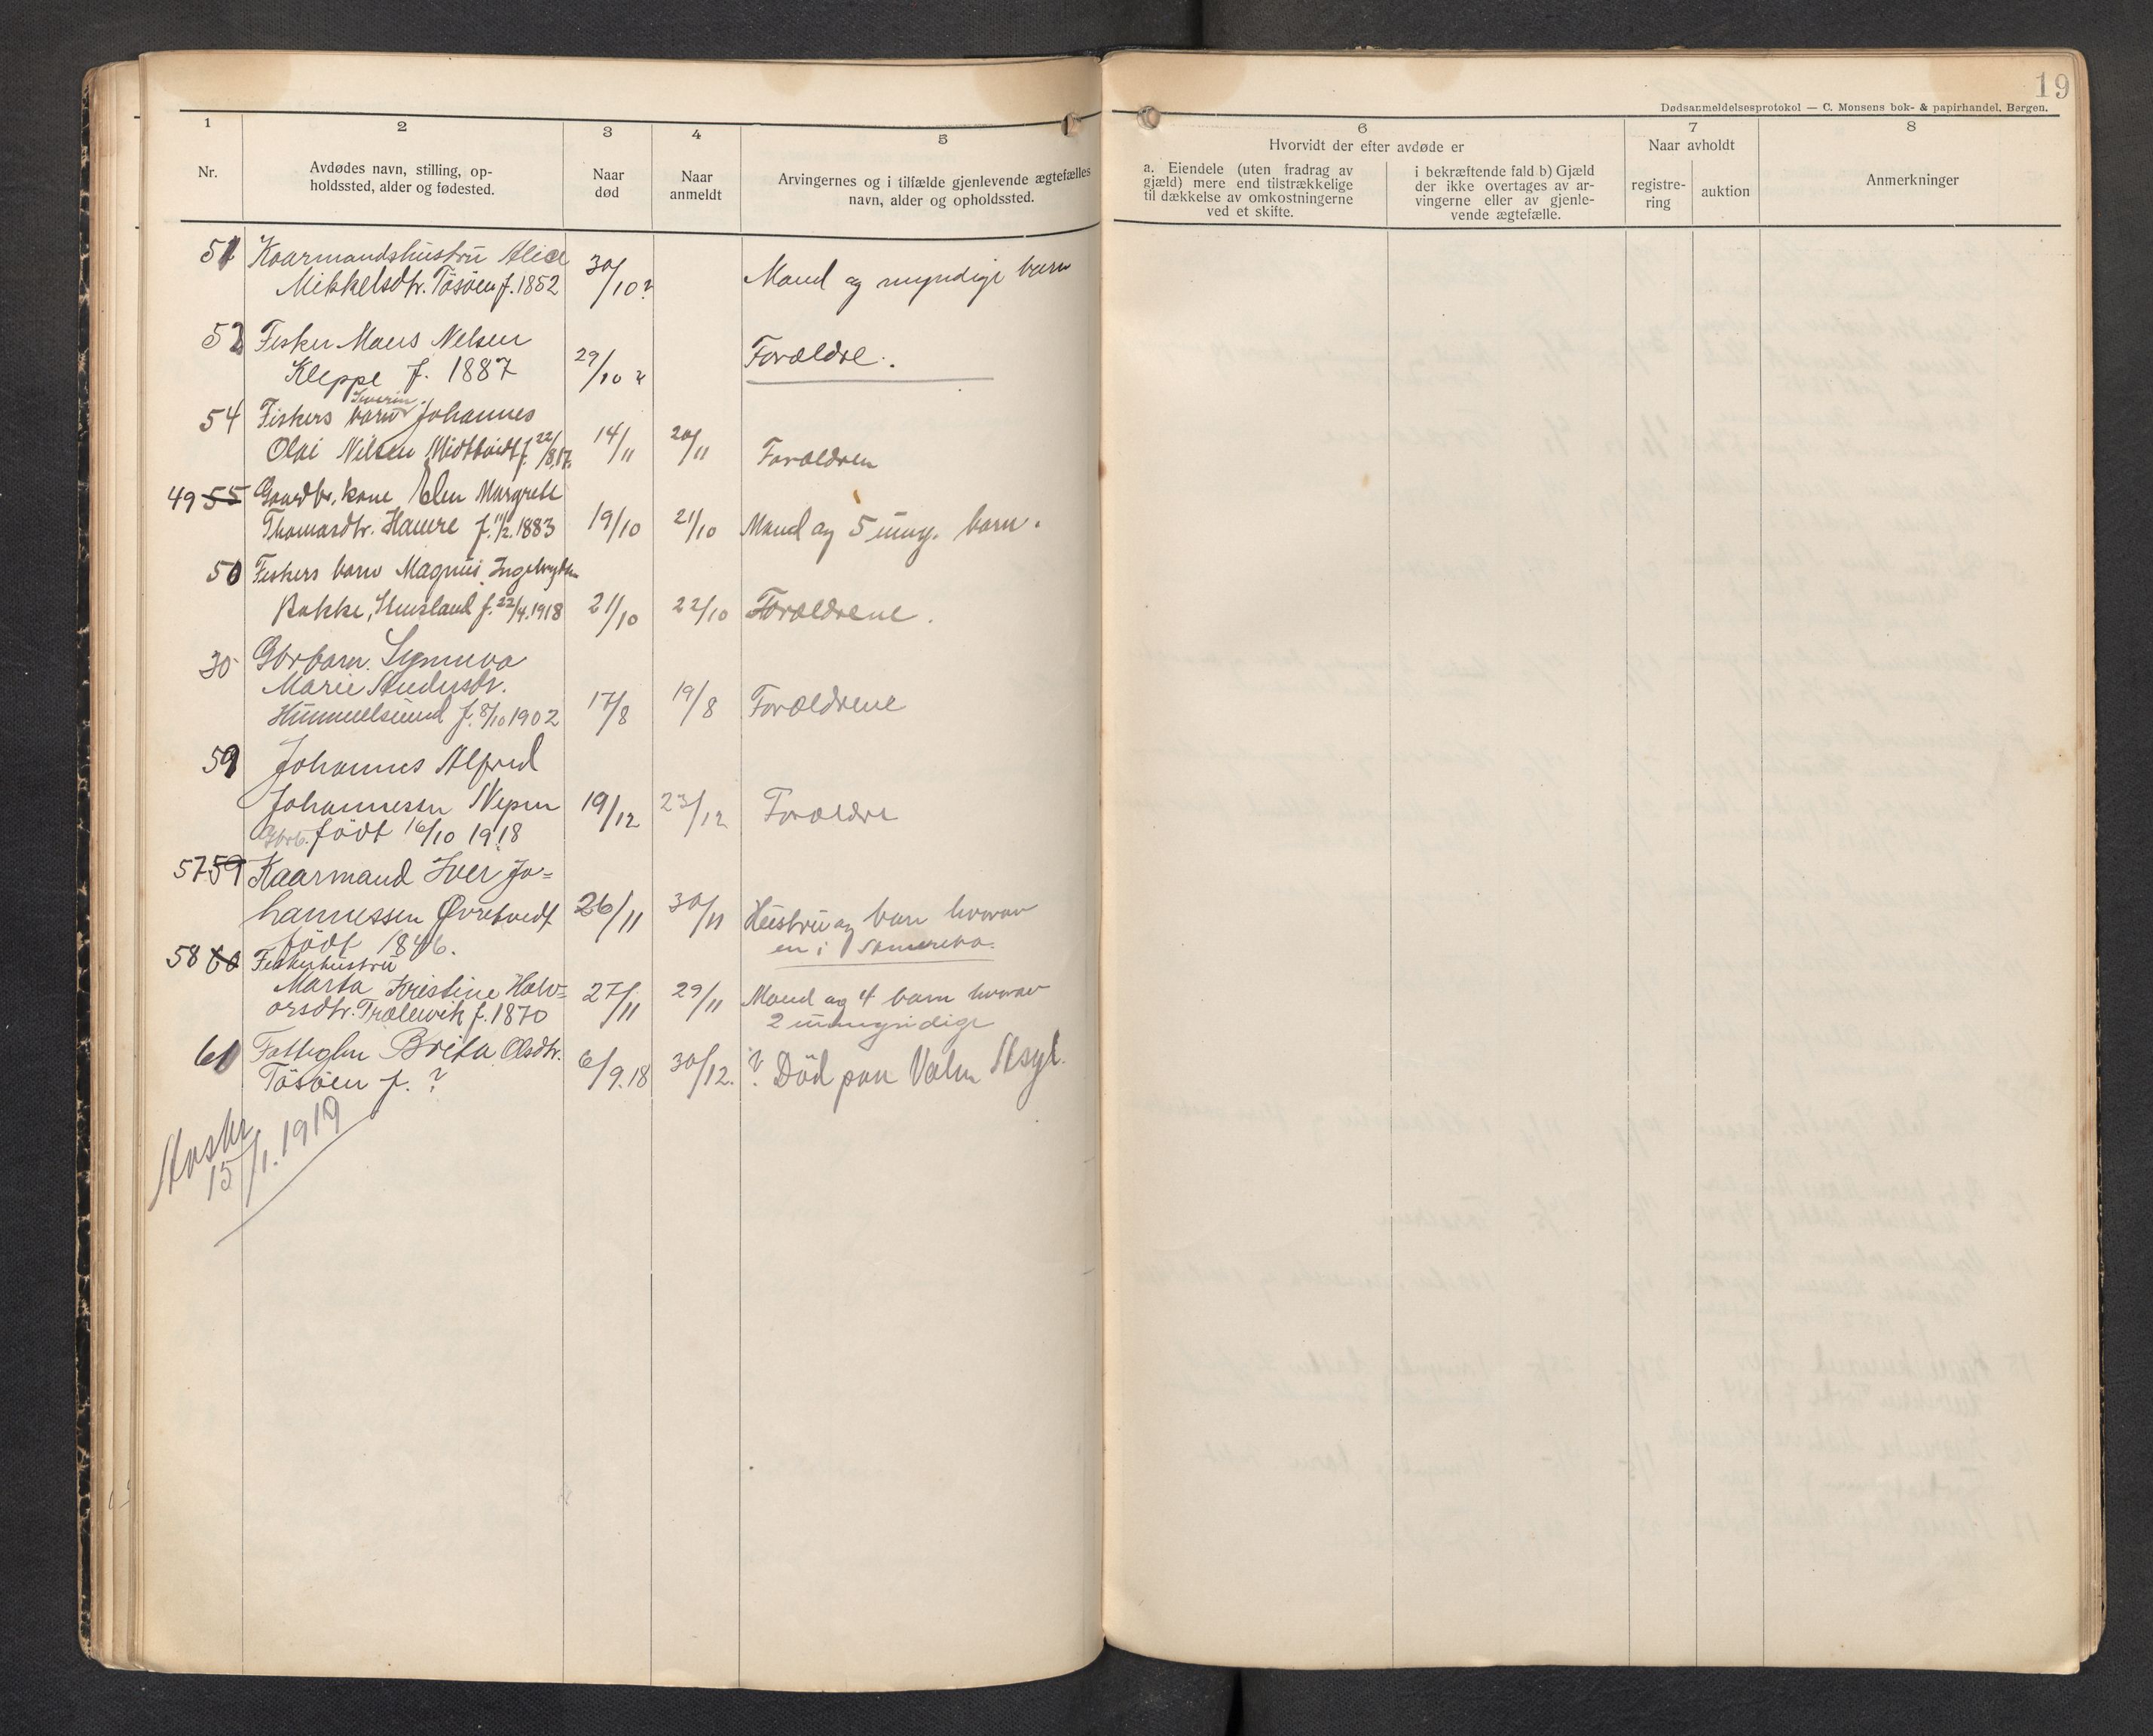 19
Dødsanmeldelsesprotokol — C. Monsens bok- & papirhandel, Bergen.
1 2 3 4 5
Nr.
Avdødes navn, stilling, op-
holdssted, alder og fødested.
Naar
død
Naar
anmeldt
Arvingernes og i tilfælde gjenlevende ægtefælles
navn, alder og opholdssted.
6 7 8
Hvorvidt der efter avdøde er
a. Eiendele (uten fradrag av
gjæld) mere end tilstrækkelige
til dækkelse av omkostningerne
ved et skifte.
i bekræftende fald b) Gjæld
der ikke overtages av ar-
vingerne eller av gjenle-
vende ægtefælle.
Naar avholdt
registre-
ring
auktion
Anmerkninger
51 Kaarmandshustru
Mikkelsdtr. Tösöen f. 1852 30/10 ? Mand og myndige barn
52 Fisker Mons Nelsen
Kleppe f. 1887 29/10 Forældre.
Severin
54 Fiskers barn Johannes
Olai Nilsen f. 22/8.17. 14/11 20/11 Forældren
49 55 Gaardbr. kone Elen Margrete
Thomasdtr. Hamre f. 11/2.1883 19/10 21/10 Mand og 5 umy. barn.
50 Fiskers barn Magnus
Bakke, f. 22/4.1918 21/10 22/10 Forældrene.
30 Gbrbarn.
Marie
f. 8/10 1902 17/8 19/8 Forældrene
59 Johannes Alfred
Johannesen 19/12 23/12 Forældre
Gbrb. födt 16/10 1918
57 59 Kaarmand Iver Jo=
hannessen Øvretvedt 26/11 30/11 Hustru og barn hvorav
födt 1846. en i Amerika.
58 60 Fiskerhustru
Marta Kristine Halv=
orsdtr. Trælevik f. 1870 27/11 29/11 Mand og 4 barn hvorav
2 umyndige
61 Fattiglem Brita Olsdtr.
Tösöen f. ? 6/9.18 30/12. ? Död paa Valen Asyl.
15/1.1919